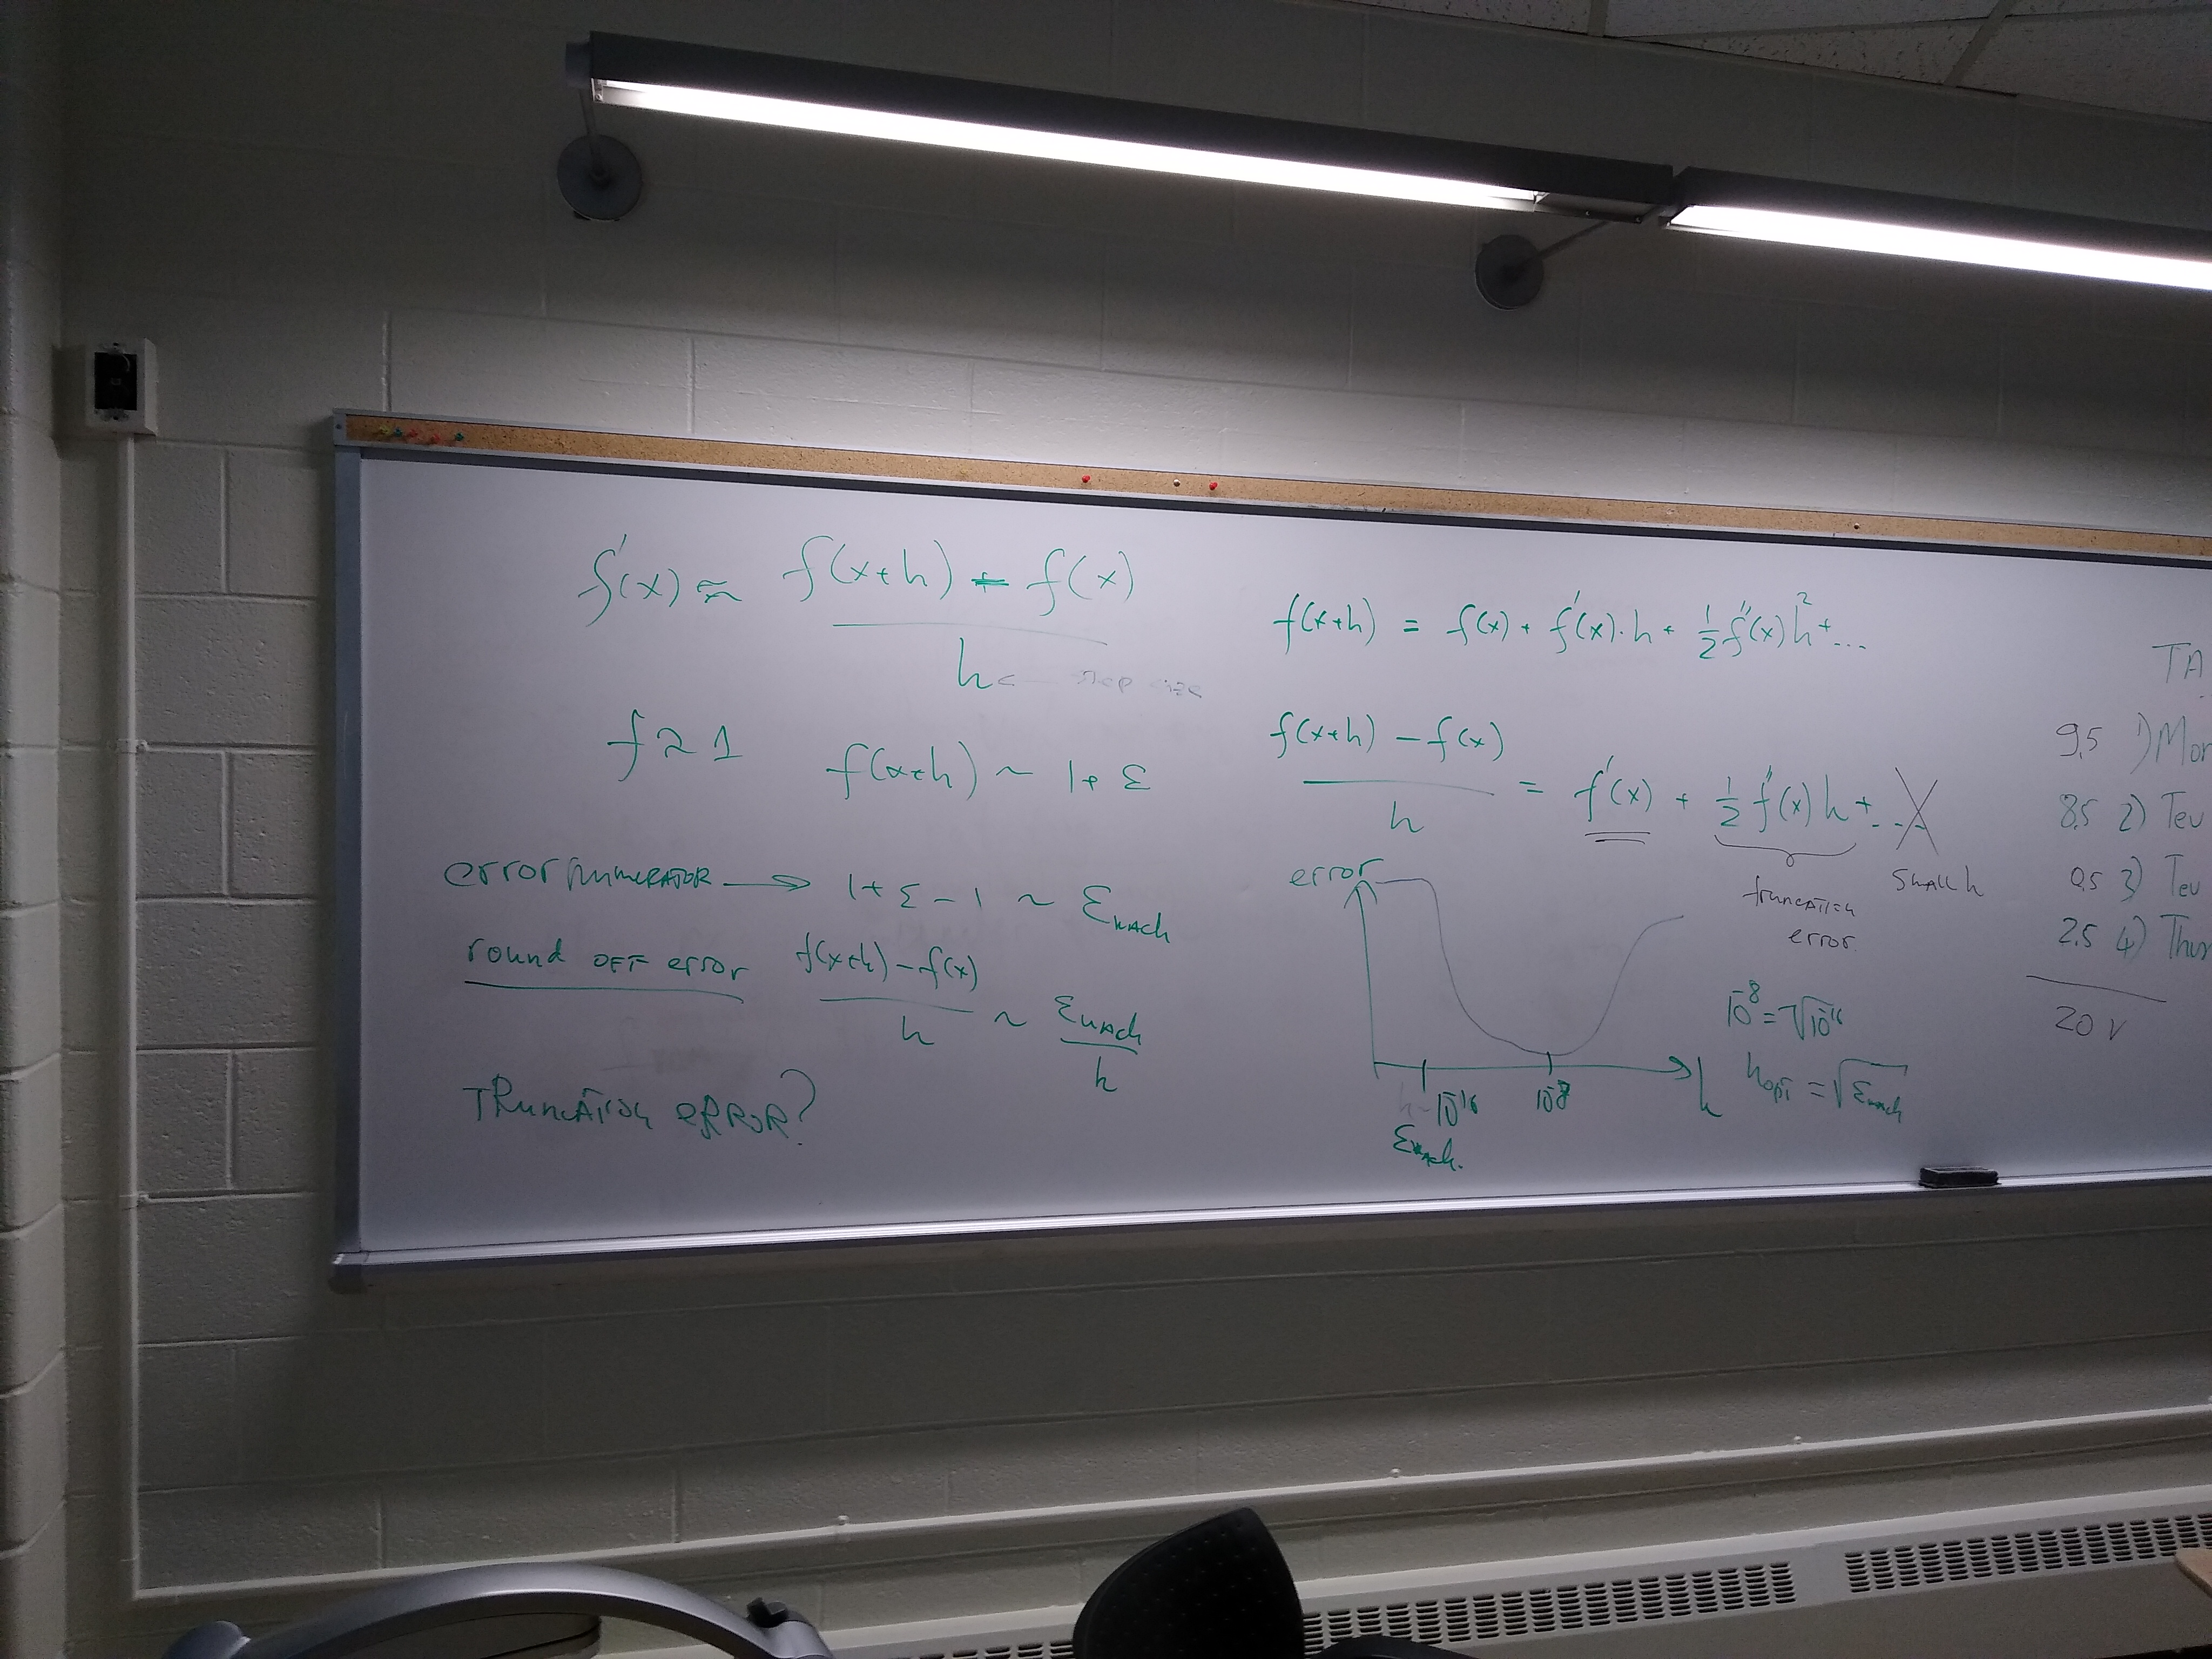 f'(x) ≈ f(x+h) - f(x)
h ← step size
f ≈ 1 f(x+h) ~ 1+ ε
error NUMERATOR → 1+ε-1 ~ ε_mach
round OFF error f(x+h)-f(x) / h ~ ε_mach / h
TRUNCATION ERROR?
f(x+h) = f(x) + f'(x)·h + 1/2 f''(x) h² + ...
f(x+h) - f(x) / h = f'(x) + 1/2 f'(x) h + ...
truncation error
small h
error
10^-16 10^-8 h
ε_mach.
10^-8 = √10^-16
h_opt = √ε_mach
TA
9.5 1) Mon
8.5 2) Teu
0.5 3) Teu
2.5 4) Thur
20